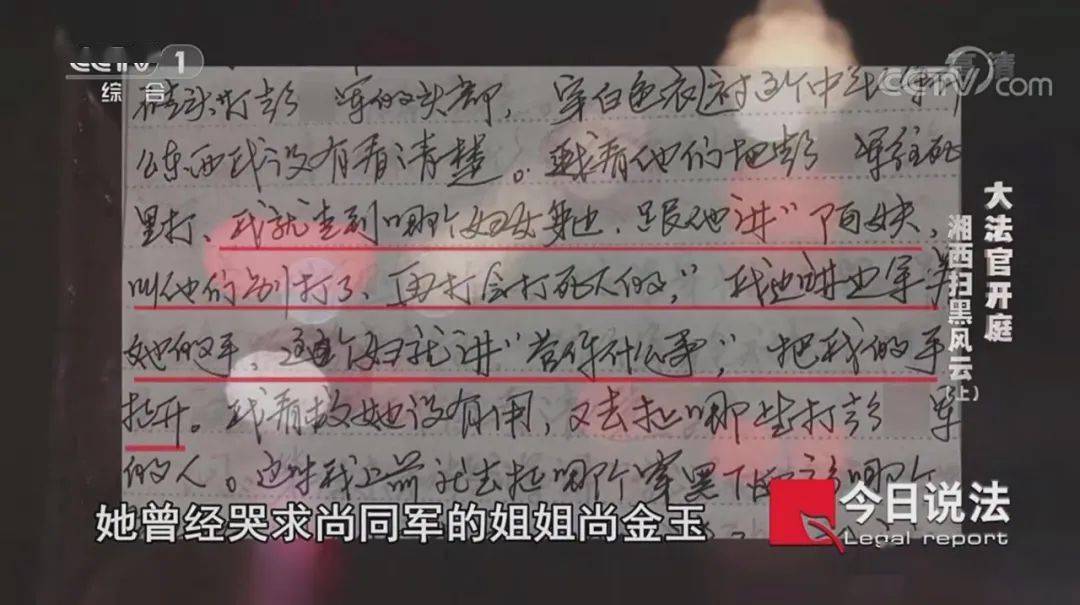 CCTV 1
综合
高清
CCTV.com
打彭 军的头部，穿白色衣
么东西我没有看清楚。我看他们把彭 军往死
里打、我就走到哪个妇女身边，跟她讲"
叫他们别打了、再打会打死人的，"我边讲边牵
她的手，这个妇就讲"管你什么事"，把我的手
拉开。我看救她没有用，又去拉哪些打彭 军
的人。这时我上前 去拉哪个穿黑
大法官开庭
湘西扫黑风云（上）
她曾经哭求尚同军的姐姐尚金玉
今日说法
Legal report